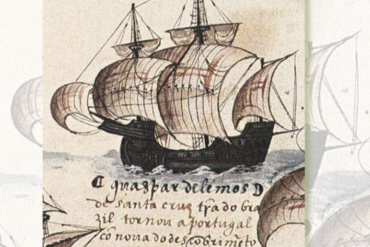 C guaspar de lemos D
de santa cruz tra do bra
zil tornou a portugal
cõ nova do descobrimẽto